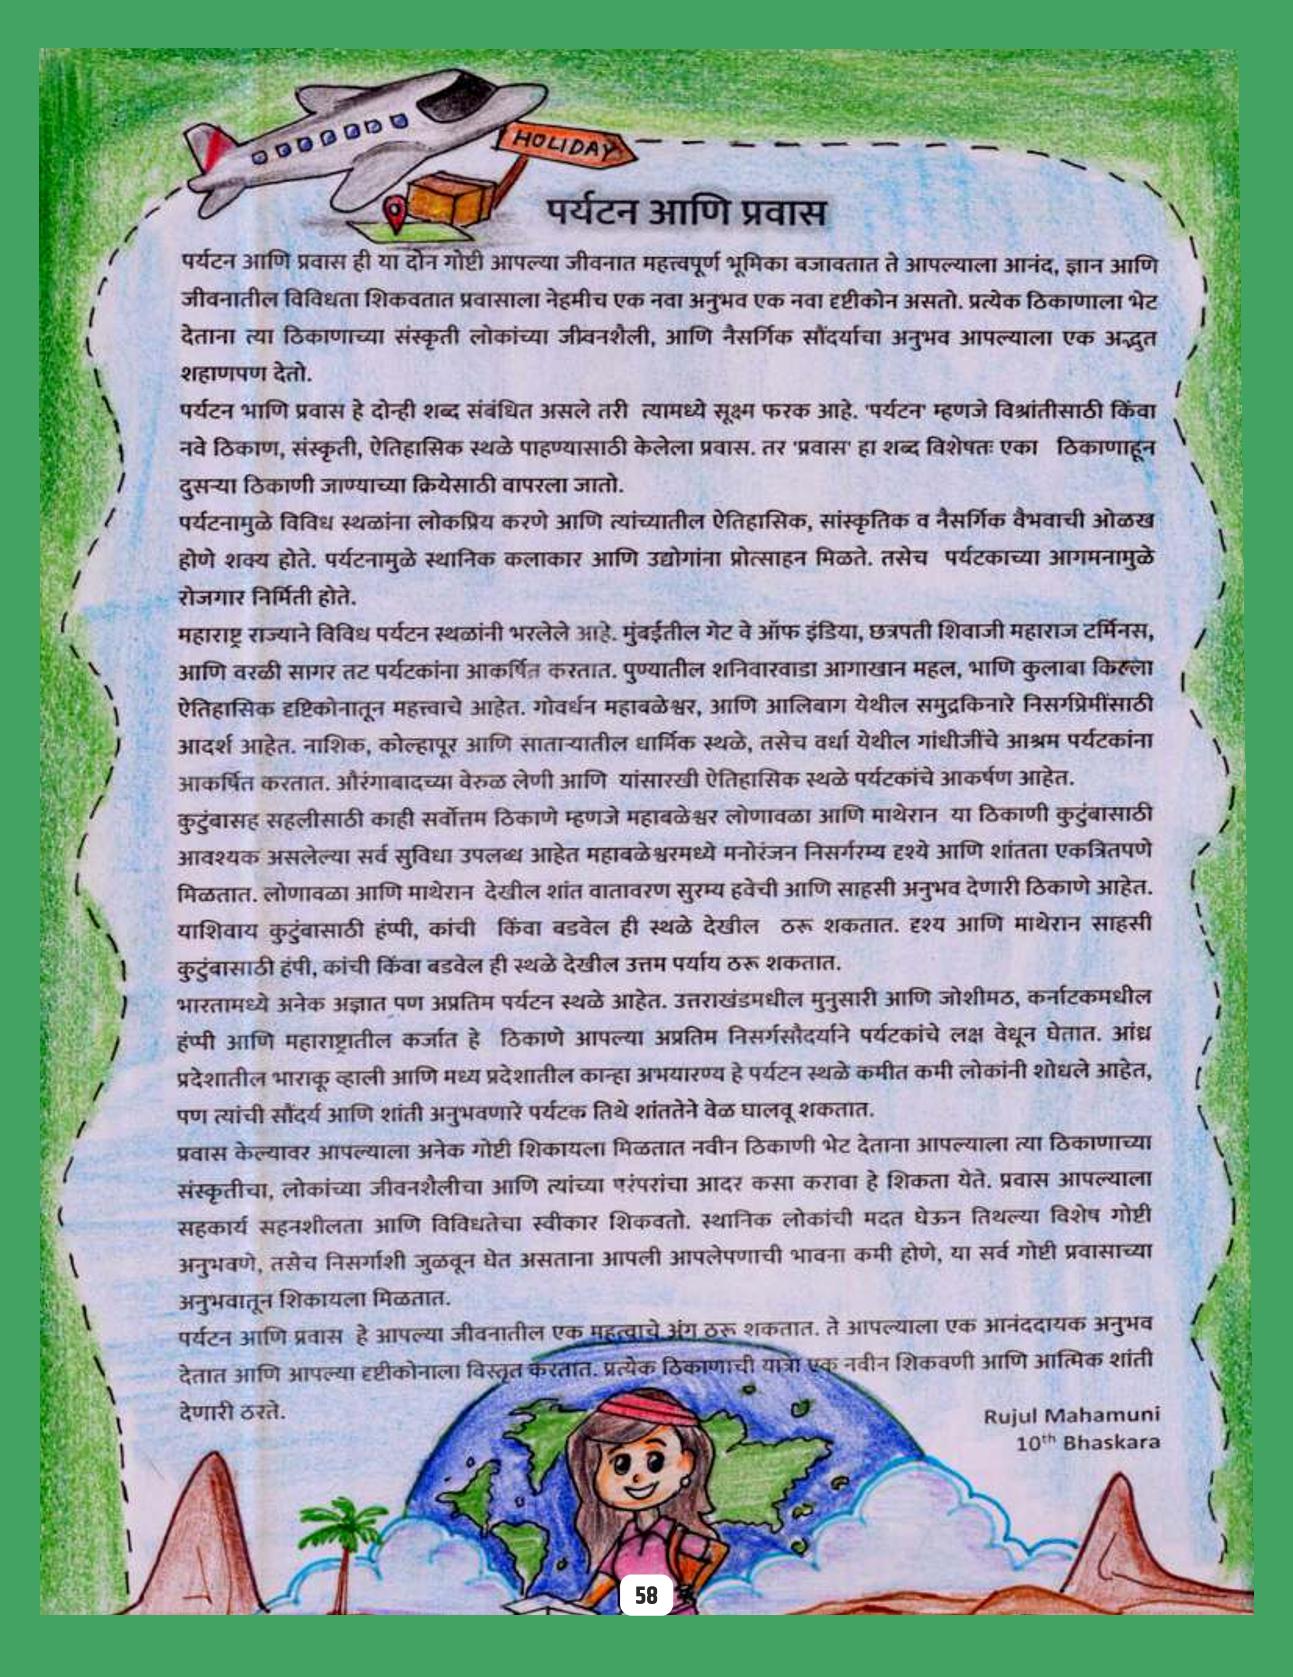 HOLIDAY
पर्यटन आणि प्रवास
पर्यटन आणि प्रवास ही या दोन गोष्टी आपल्या जीवनात महत्त्वपूर्ण भूमिका बजावतात ते आपल्याला आनंद, ज्ञान आणि
जीवनातील विविधता शिकवतात प्रवासाला नेहमीच एक नवा अनुभव एक नवा दृष्टीकोन असतो. प्रत्येक ठिकाणाला भेट
देताना त्या ठिकाणाच्या संस्कृती लोकांच्या जीवनशैली, आणि नैसर्गिक सौंदर्याचा अनुभव आपल्याला एक अद्भुत
शहाणपण देतो.
पर्यटन भाणि प्रवास हे दोन्ही शब्द संबंधित असले तरी त्यामध्ये सूक्ष्म फरक आहे. 'पर्यटन' म्हणजे विश्रांतीसाठी किंवा
नवे ठिकाण, संस्कृती, ऐतिहासिक स्थळे पाहण्यासाठी केलेला प्रवास. तर 'प्रवास' हा शब्द विशेषतः एका ठिकाणाहून
दुसऱ्या ठिकाणी जाण्याच्या क्रियेसाठी वापरला जातो.
पर्यटनामुळे विविध स्थळांना लोकप्रिय करणे आणि त्यांच्यातील ऐतिहासिक, सांस्कृतिक व नैसर्गिक वैभवाची ओळख
होणे शक्य होते. पर्यटनामुळे स्थानिक कलाकार आणि उद्योगांना प्रोत्साहन मिळते. तसेच पर्यटकाच्या आगमनामुळे
रोजगार निर्मिती होते.
महाराष्ट्र राज्याने विविध पर्यटन स्थळांनी भरलेले आहे. मुंबईतील गेट वे ऑफ इंडिया, छत्रपती शिवाजी महाराज टर्मिनस,
आणि वरळी सागर तट पर्यटकांना आकर्षित करतात. पुण्यातील शनिवारवाडा आगाखान महल, भाणि कुलाबा किल्ला
ऐतिहासिक दृष्टिकोनातून महत्त्वाचे आहेत. गोवर्धन महाबळेश्वर, आणि आलिबाग येथील समुद्रकिनारे निसर्गप्रेमींसाठी
आदर्श आहेत. नाशिक, कोल्हापूर आणि साताऱ्यातील धार्मिक स्थळे, तसेच वर्धा येथील गांधीजींचे आश्रम पर्यटकांना
आकर्षित करतात. औरंगाबादच्या वेरुळ लेणी आणि यांसारखी ऐतिहासिक स्थळे पर्यटकांचे आकर्षण आहेत.
कुटुंबासह सहलीसाठी काही सर्वोत्तम ठिकाणे म्हणजे महाबळेश्वर लोणावळा आणि माथेरान या ठिकाणी कुटुंबासाठी
आवश्यक असलेल्या सर्व सुविधा उपलब्ध आहेत महाबळेश्वरमध्ये मनोरंजन निसर्गरम्य दृश्ये आणि शांतता एकत्रितपणे
मिळतात. लोणावळा आणि माथेरान देखील शांत वातावरण सुरम्य हवेची आणि साहसी अनुभव देणारी ठिकाणे आहेत.
याशिवाय कुटुंबासाठी हंप्पी, कांची किंवा बडवेल ही स्थळे देखील ठरू शकतात. दृश्य आणि माथेरान साहसी
कुटुंबासाठी हंपी, कांची किंवा बडवेल ही स्थळे देखील उत्तम पर्याय ठरू शकतात.
भारतामध्ये अनेक अज्ञात पण अप्रतिम पर्यटन स्थळे आहेत. उत्तराखंडमधील मुनुसारी आणि जोशीमठ, कर्नाटकमधील
हंप्पी आणि महाराष्ट्रातील कर्जात हे ठिकाणे आपल्या अप्रतिम निसर्गसौदर्याने पर्यटकांचे लक्ष वेधून घेतात. आंध्र
प्रदेशातील भाराकू व्हाली आणि मध्य प्रदेशातील कान्हा अभयारण्य हे पर्यटन स्थळे कमीत कमी लोकांनी शोधले आहेत,
पण त्यांची सौंदर्य आणि शांती अनुभवणारे पर्यटक तिथे शांततेने वेळ घालवू शकतात.
प्रवास केल्यावर आपल्याला अनेक गोष्टी शिकायला मिळतात नवीन ठिकाणी भेट देताना आपल्याला त्या ठिकाणाच्या
संस्कृतीचा, लोकांच्या जीवनशैलीचा आणि त्यांच्या परंपरांचा आदर कसा करावा हे शिकता येते. प्रवास आपल्याला
सहकार्य सहनशीलता आणि विविधतेचा स्वीकार शिकवतो. स्थानिक लोकांची मदत घेऊन तिथल्या विशेष गोष्टी
अनुभवणे, तसेच निसर्गाशी जुळवून घेत असताना आपली आपलेपणाची भावना कमी होणे, या सर्व गोष्टी प्रवासाच्या
अनुभवातून शिकायला मिळतात.
पर्यटन आणि प्रवास हे आपल्या जीवनातील एक महत्वाचे अंग ठरू शकतात. ते आपल्याला एक आनंददायक अनुभव
देतात आणि आपल्या दृष्टीकोनाला विस्तृत करतात. प्रत्येक ठिकाणाची यात्रा एक नवीन शिकवणी आणि आत्मिक शांती
देणारी ठरते.
Rujul Mahamuni
10th Bhaskara
58